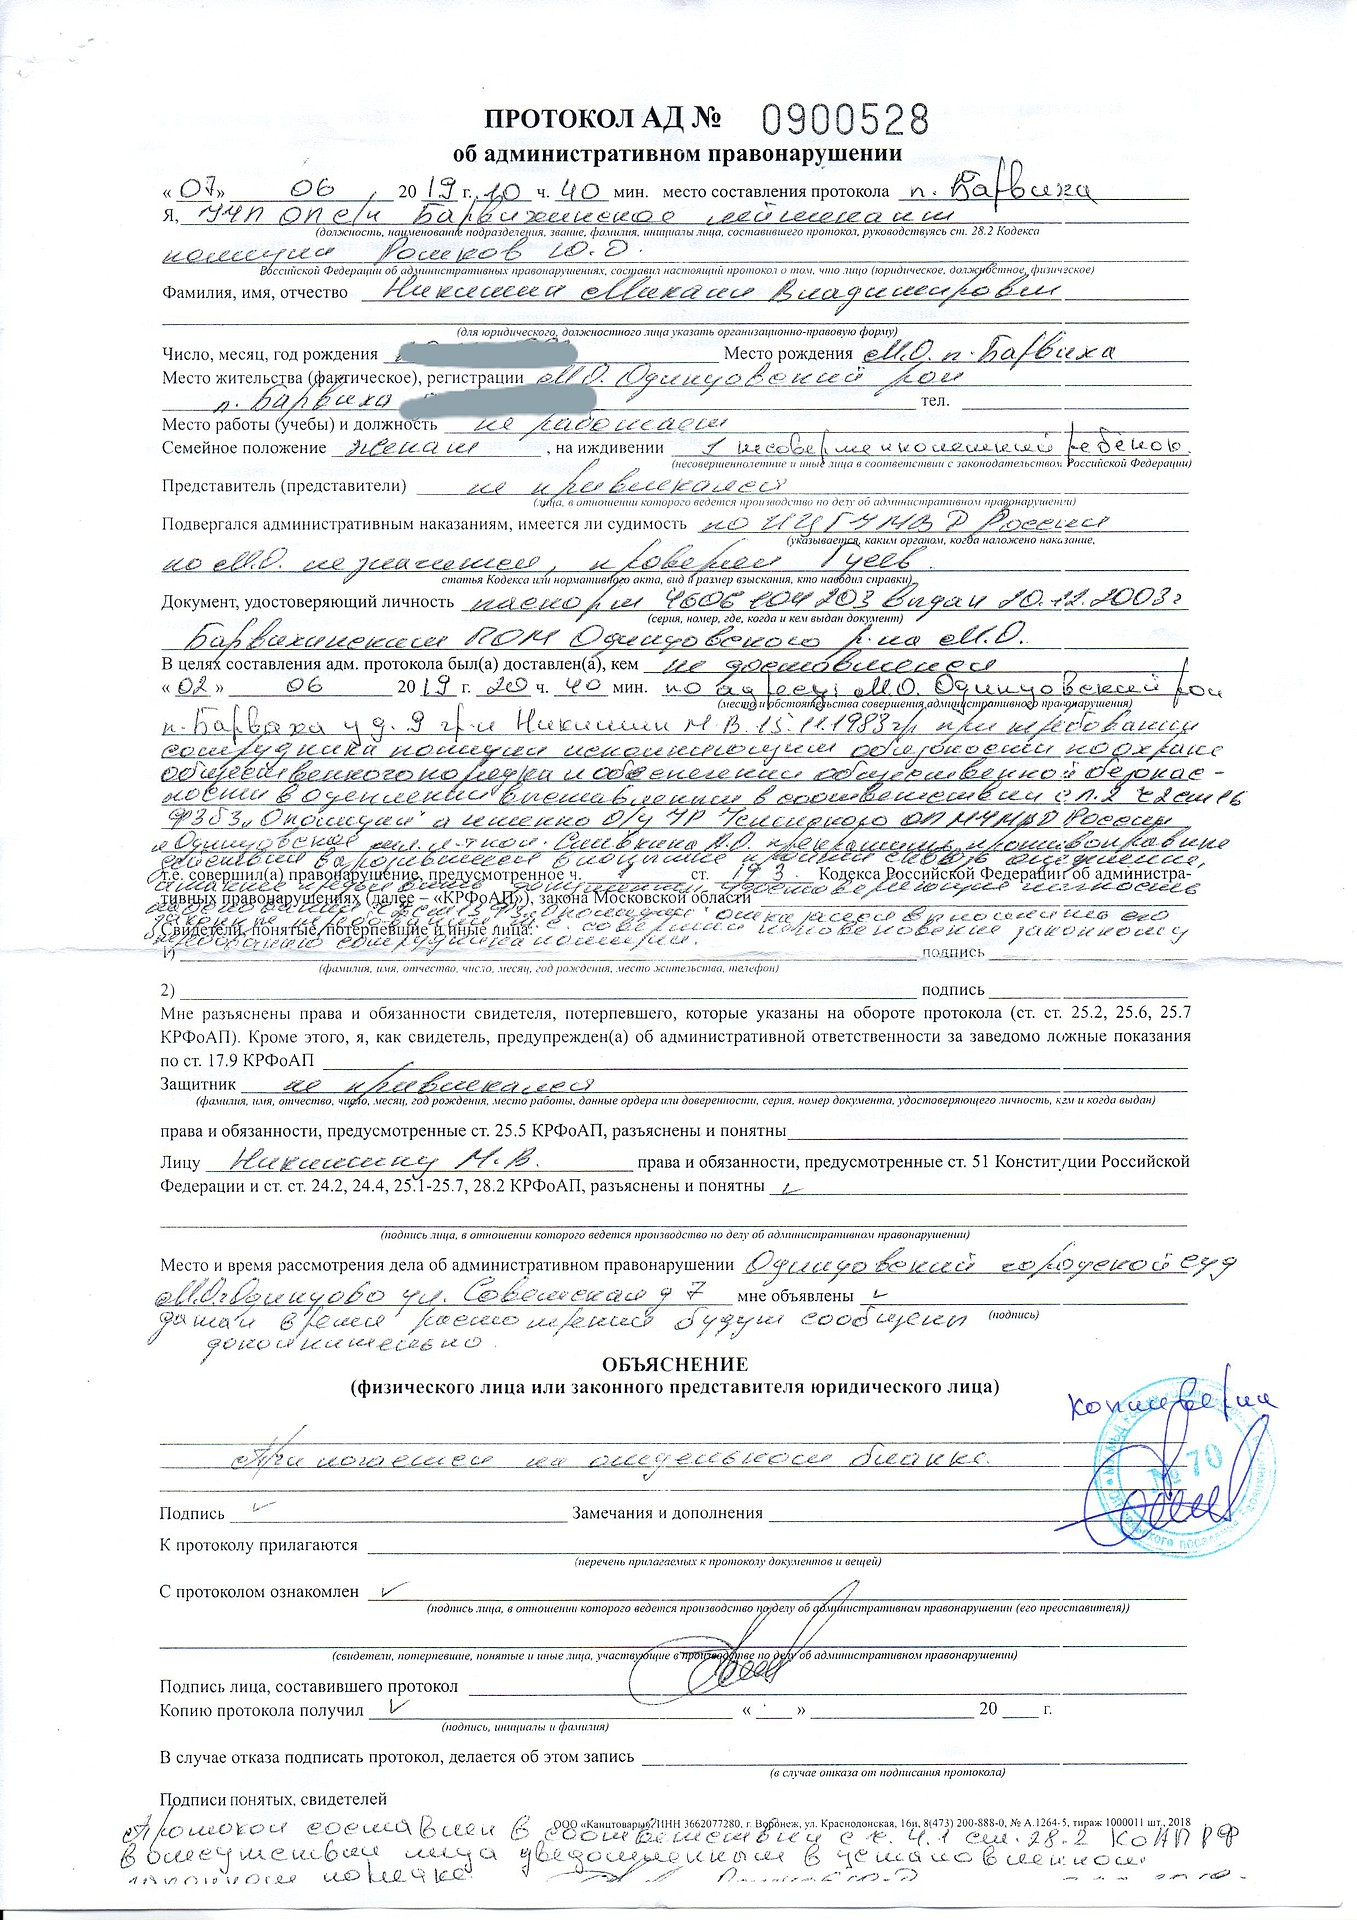 ПРОТОКОЛ АД № 0900528
об административном правонарушении
« 07 » 06 20 19 г. 10 ч. 40 мин. место составления протокола п. Барвиха
Я, УУП ОП с/п Барвихинское лейтенант
(должность, наименование подразделения, звание, фамилия, инициалы лица, составившего протокол, руководствуясь ст. 28.2 Кодекса
полиции Рошков Ю.О.
Российской Федерации об административных правонарушениях, составил настоящий протокол о том, что лицо (юридическое, должностное, физическое)
Фамилия, имя, отчество Никишин Михаил Владимирович
(для юридического, должностного лица указать организационно-правовую форму)
Число, месяц, год рождения Место рождения М.О. п. Барвиха
Место жительства (фактическое), регистрации М.О. Одинцовский рон
п. Барвиха тел.
Место работы (учебы) и должность не работает
Семейное положение женат , на иждивении 1 несовершеннолетний ребёнок.
(несовершеннолетние и иные лица в соответствии с законодательством Российской Федерации)
Представитель (представители) не привлекался
(лица, в отношении которого ведется производство по делу об административном правонарушении)
Подвергался административным наказаниям, имеется ли судимость по ИЦ ГУ МВД России
(указывается, каким органом, когда наложено наказание,
по М.О. не значится, проверил Гусев.
статья Кодекса или нормативного акта, вид и размер взыскания, кто наводил справки)
Документ, удостоверяющий личность паспорт 4606 104 203 выдан 20.12.2003г
(серия, номер, где, когда и кем выдан документ)
Барвихинским ПОМ Одинцовского р-на М.О.
В целях составления адм. протокола был(а) доставлен(а), кем не доставлялся
« 02 » 06 20 19 г. 20 ч. 40 мин. по адресу: М.О. Одинцовский рон
(место и обстоятельства совершения административного правонарушения)
п. Барвиха у д. 9 гр-н Никишин М.В. 15.11.1983г.р. при требовании
сотрудника полиции исполняющим обязанности по охране
общественного порядка и обеспечении общественной безопас-
ности в оцеплении выставленным в соответствии с п.2 ч.2 ст 16
ФЗ №3 „О полиции" а именно О/У УР Успенского ОП МУ МВД России
„Одинцовское л-т пол. Сливкина прекратить противоправные
действия выразившиеся в попытке пройти сквозь оцепление,
т.е. совершил(а) правонарушение, предусмотренное ч. 1 ст. 19.3. Кодекса Российской Федерации об администра-
а также предъявить документы, удостоверяющие личность
тивных правонарушениях (далее – «КРФоАП»), закона Московской области
„О полиции" отказался выполнить его
законные требования т.е. совершил неповиновение законному
Свидетели, понятые, потерпевшие и иные лица:
требованию сотрудника полиции.
1) подпись
(фамилия, имя, отчество, число, месяц, год рождения, место жительства, телефон)
2) подпись
Мне разъяснены права и обязанности свидетеля, потерпевшего, которые указаны на обороте протокола (ст. ст. 25.2, 25.6, 25.7
КРФоАП). Кроме этого, я, как свидетель, предупрежден(а) об административной ответственности за заведомо ложные показания
по ст. 17.9 КРФоАП
Защитник не привлекался
(фамилия, имя, отчество, число, месяц, год рождения, место работы, данные ордера или доверенности, серия, номер документа, удостоверяющего личность, кем и когда выдан)
права и обязанности, предусмотренные ст. 25.5 КРФоАП, разъяснены и понятны
Лицу Никишину М.В. права и обязанности, предусмотренные ст. 51 Конституции Российской
Федерации и ст. ст. 24.2, 24.4, 25.1-25.7, 28.2 КРФоАП, разъяснены и понятны
(подпись лица, в отношении которого ведется производство по делу об административном правонарушении)
Место и время рассмотрения дела об административном правонарушении Одинцовский городской суд
М.О. г. Одинцово ул. Советская д 7 мне объявлены
(подпись)
дата и время рассмотрения будут сообщены
дополнительно.
ОБЪЯСНЕНИЕ
(физического лица или законного представителя юридического лица)
копия верна
№ 70
Прилагается на отдельном бланке.
Подпись Замечания и дополнения
К протоколу прилагаются
(перечень прилагаемых к протоколу документов и вещей)
С протоколом ознакомлен
(подпись лица, в отношении которого ведется производство по делу об административном правонарушении (его представителя))
(свидетели, потерпевшие, понятые и иные лица, участвующие в производстве по делу об административном правонарушении)
Подпись лица, составившего протокол
Копию протокола получил « » 20 г.
(подпись, инициалы и фамилия)
В случае отказа подписать протокол, делается об этом запись
(в случае отказа от подписания протокола)
Подписи понятых, свидетелей
ООО «Канцтовары» ИНН 3662077280, г. Воронеж, ул. Краснодонская, 16и, 8(473) 200-888-0, № А.1264-5, тираж 1000011 шт., 2018
Протокол составлен в соответствии с ч. 4.1 ст. 28.2 КоАП РФ
в отсутствии лица уведомленным в установленном
законном порядке.